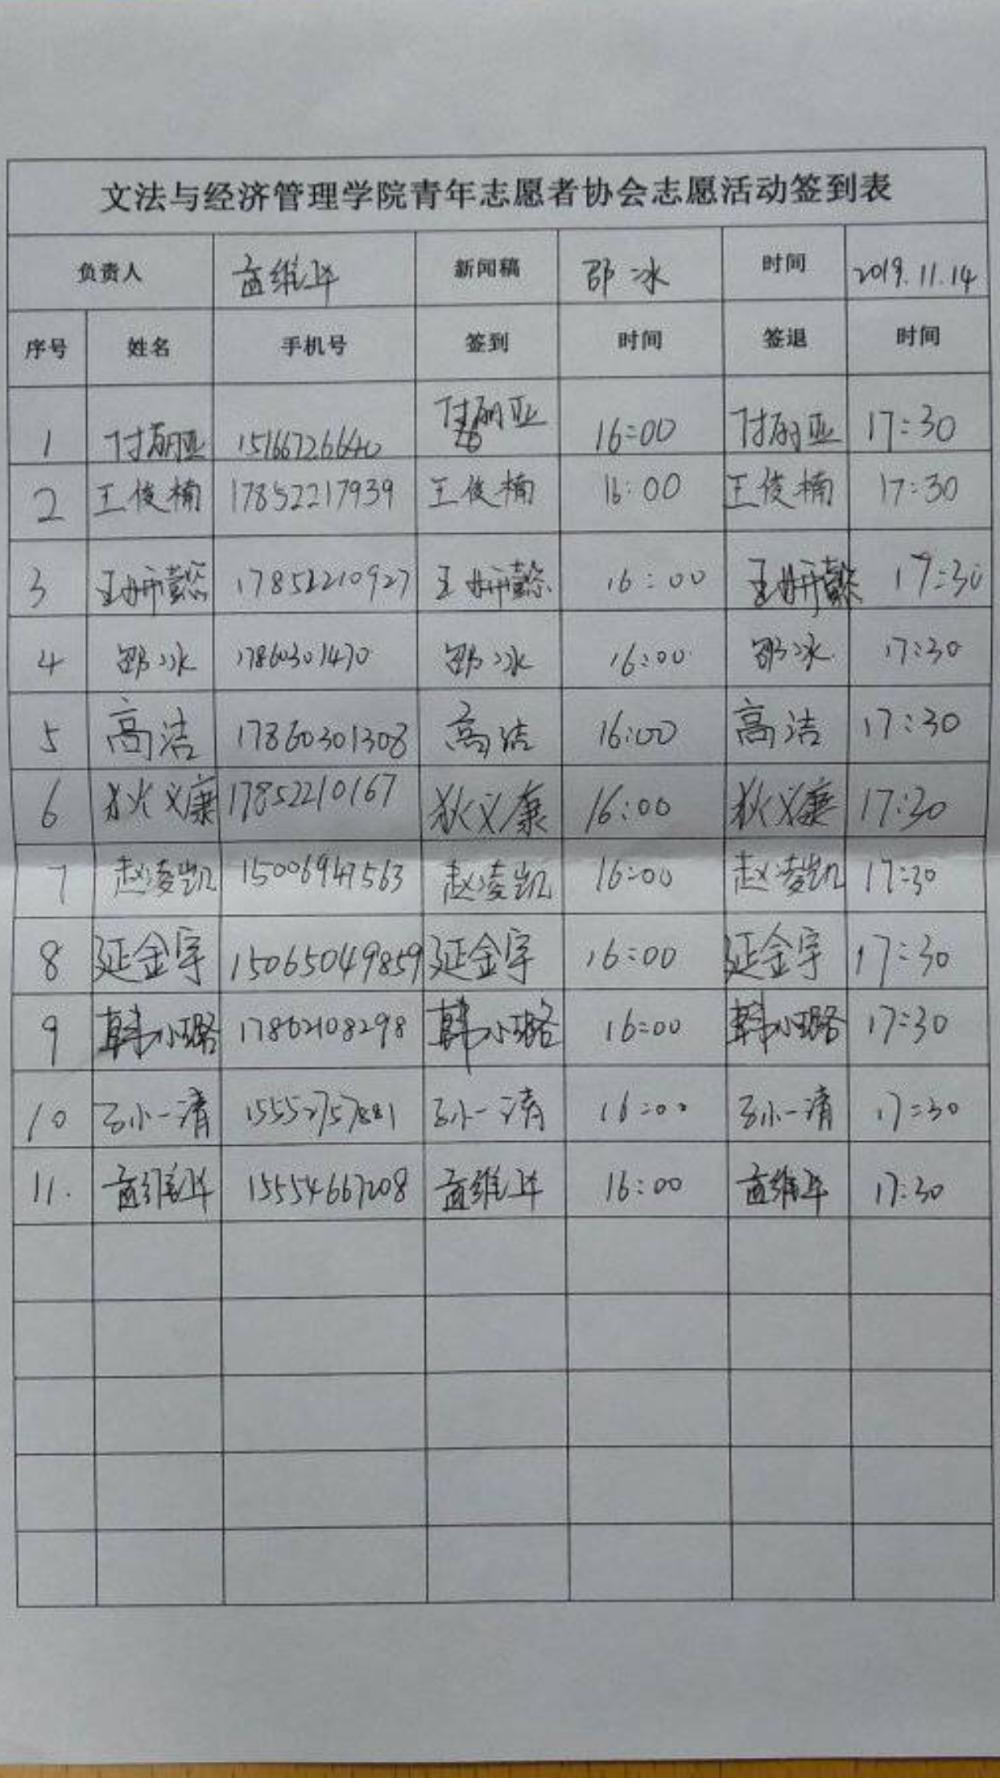 文法与经济管理学院青年志愿者协会志愿活动签到表
负责人 孟维华 新闻稿 邵冰 时间 2019.11.14
序号 姓名 手机号 签到 时间 签退 时间
1 付丽亚 15166726640 付丽亚 16:00 付丽亚 17:30
2 王俊楠 17852217939 王俊楠 16:00 王俊楠 17:30
3 王妍懿 17852210927 王妍懿 16:00 王妍懿 17:30
4 邵冰 17860301470 邵冰 16:00 邵冰 17:30
5 高洁 17860301308 高洁 16:00 高洁 17:30
6 狄义康 17852210167 狄义康 16:00 狄义康 17:30
7 赵凌凯 15006947563 赵凌凯 16:00 赵凌凯 17:30
8 延金宇 15065049859 延金宇 16:00 延金宇 17:30
9 韩小璐 17862108298 韩小璐 16:00 韩小璐 17:30
10 孙一清 15552757881 孙一清 16:00 孙一清 17:30
11. 15554667208 16:00 17:30